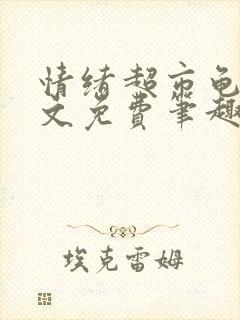 情绪超市龟
文免费笔趣
埃克雷姆